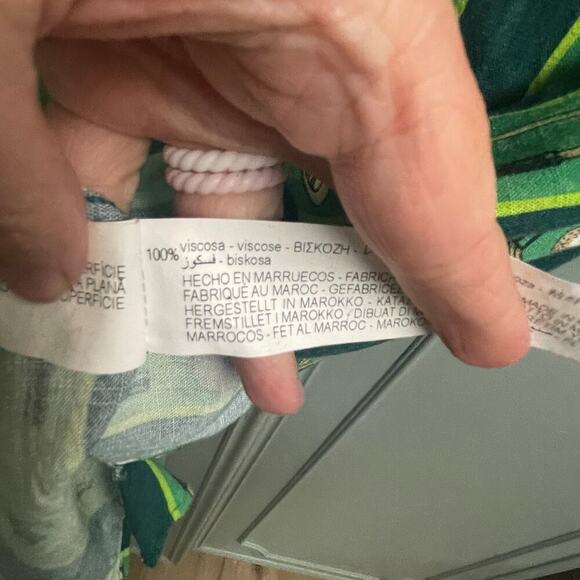 RFÍCIE
PLANĂ
SUPERFÍCIE
100% viscosa - viscose - ΒΙΣΚΟΖΗ -
فسكوز - biskosa
HECHO EN MARRUECOS - FABRICA
FABRIQUÉ AU MAROC - GEFABRICEE
HERGESTELLT IN MAROKKO - KATA
FREMSTILLET I MAROKKO - DIBUAT DI M
MARROCOS - FET AL MARROC - MAROKO
MADE IN